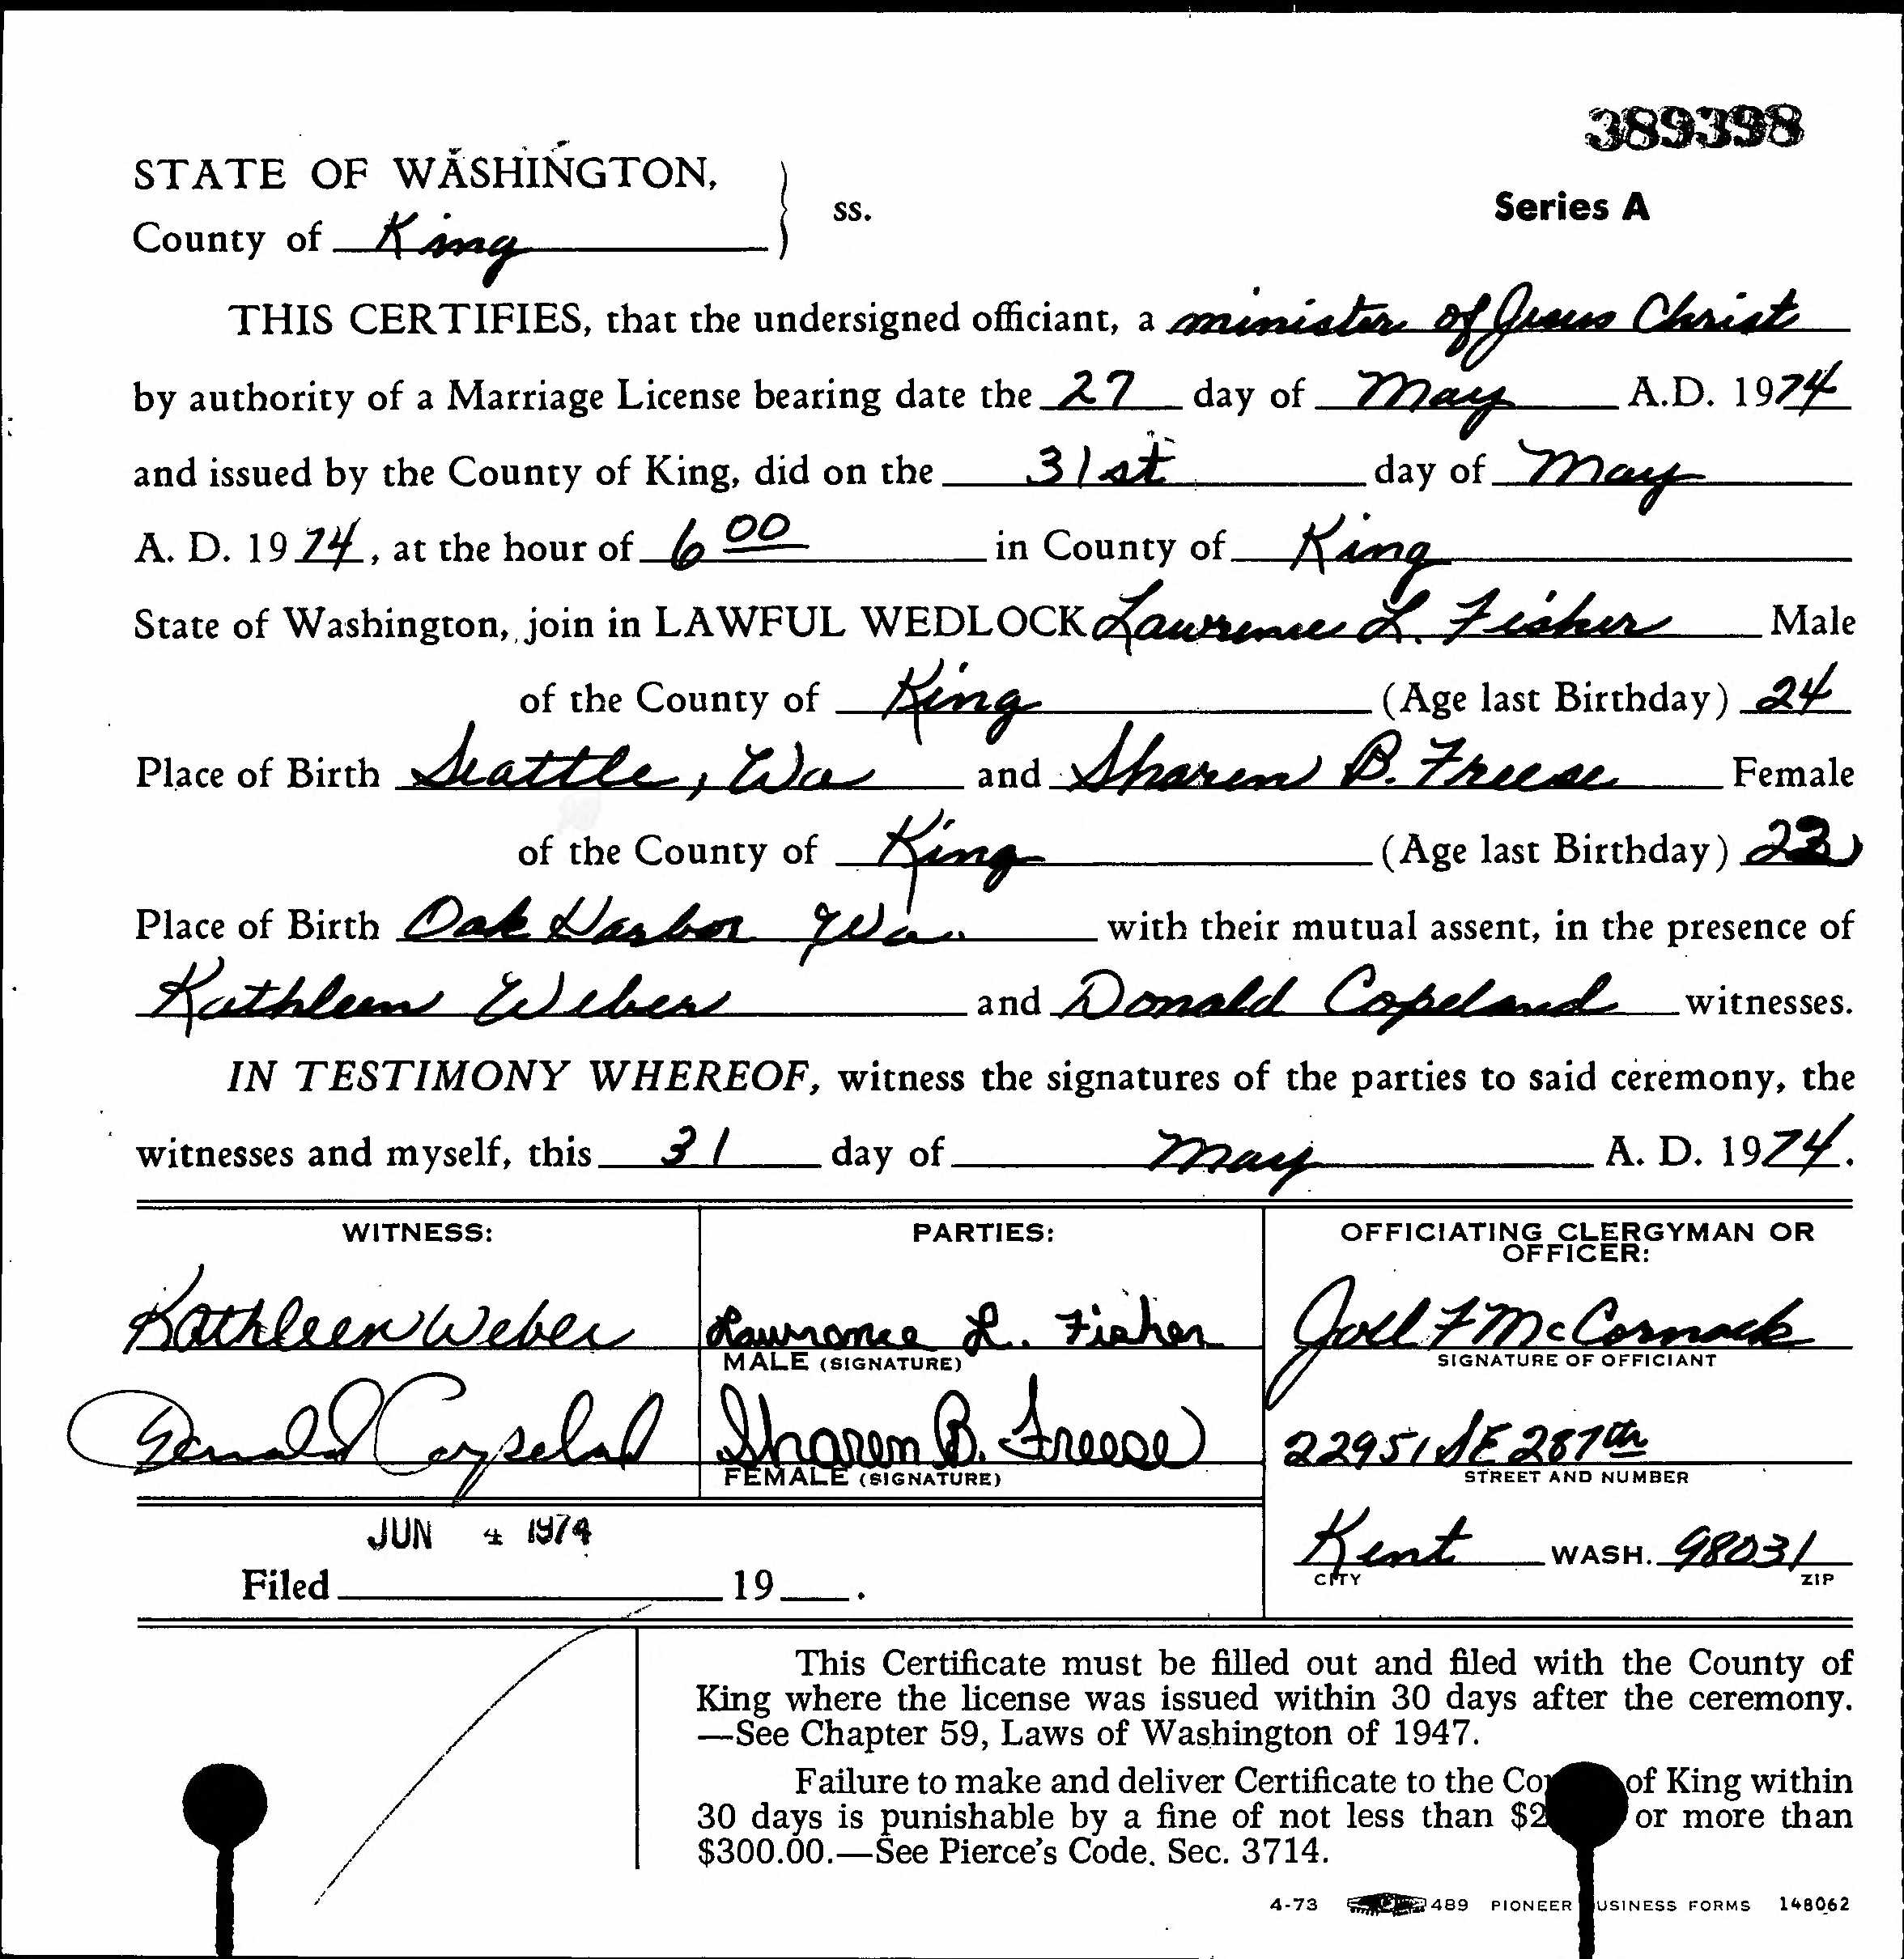 389398
STATE OF WASHINGTON,
ss.
Series A
County of King
THIS CERTIFIES, that the undersigned officiant, a minister of Jesus Christ
by authority of a Marriage License bearing date the 27 day of May A.D. 1974
and issued by the County of King, did on the 31st day of May
A. D. 1974, at the hour of 6 00 in County of King
State of Washington, join in LAWFUL WEDLOCK Lawrence L. Fisher Male
of the County of King (Age last Birthday) 24
Place of Birth Seattle, Wa and Sharen B. Freese Female
of the County of King (Age last Birthday) 23
Place of Birth Oak Harbor Wa. with their mutual assent, in the presence of
Kathleen Weber and Donald Copeland witnesses.
IN TESTIMONY WHEREOF, witness the signatures of the parties to said ceremony, the
witnesses and myself, this 31 day of May A. D. 1974.
WITNESS: PARTIES: OFFICIATING CLERGYMAN OR
OFFICER:
Kathleen Weber Lawrence L. Fisher Joel F McCornack
MALE (SIGNATURE) SIGNATURE OF OFFICIANT
Donald Copeland Sharen B. Freese 22951 SE 287th
FEMALE (SIGNATURE) STREET AND NUMBER
JUN 4 1974
Kent WASH. 98031
CITY ZIP
Filed 19 .
This Certificate must be filled out and filed with the County of
King where the license was issued within 30 days after the ceremony.
—See Chapter 59, Laws of Washington of 1947.
Failure to make and deliver Certificate to the Co of King within
30 days is punishable by a fine of not less than $2 or more than
$300.00.—See Pierce's Code, Sec. 3714.
4-73 489 PIONEER USINESS FORMS 148062